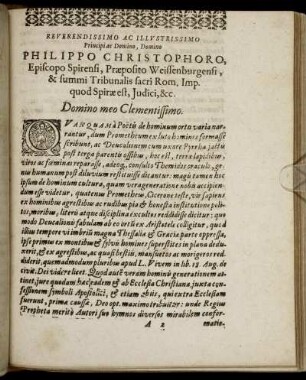 REVERENDISSIMO AC ILLVSTRISSIMO
Principi ac Domino, Domino
PHILIPPO CHRISTOPHORO,
Episcopo Spirensi, Præposito Weissenburgensi,
& summi Tribunalis sacri Rom. Imp.
quod Spiræ est, Judici, &c.
Domino meo Clementissimo.
QVANQVAM à Poëtis de hominum ortu varia nar-
rantur, dum Prometheum ex luto homines formasse
scribunt, ac Deucalionem cum uxore Pyrrha jactis
post terga parentis ossibus, hoc est, terræ lapidibus,
viros ac fœminas reparasse, adeoq, consulto Themidis oraculo, ge-
nus humanum post diluvium restituisse dicantur: magis tamen hoc
ipsum de hominum cultura, quam vera generatione nobis accipien-
dum esse videtur, quatenus Prometheus, Cicerone teste, vir sapiens
ex hominibus agrestibus ac rudibus pia & honesta institutione poli-
tos, moribus, literis atque disciplina excultos reddidisse dicitur: quo
modo Deucalionis fabulam ab eo ortu ex Aristotele colligitur, quod
illius tempore vi imbrium magna Thessaliæ & Græciæ parte oppressa,
ipse primus ex montibus & sylvis homines superstites in plana dedu-
xerit, & ex agrestibus, ac quasi bestiis, mansuetos ac morigeros red-
diderit, quemadmodum pluribus apud L. Vivem in lib. 18. Aug. de
civit. Dei videre licet. Quod autem veram hominis generationem at-
tinet, jure quodam hæc eadem & ab Ecclesia Christiana, juxta con-
fessionem symboli Apostolici, & etiam ab iis, qui extra Ecclesiam
fuerunt, primæ causæ, Deo opt. maximo tribuitur: unde Regius
Propheta merito Autori suo hymnos diversos mirabilem confor-
A 2 matio-